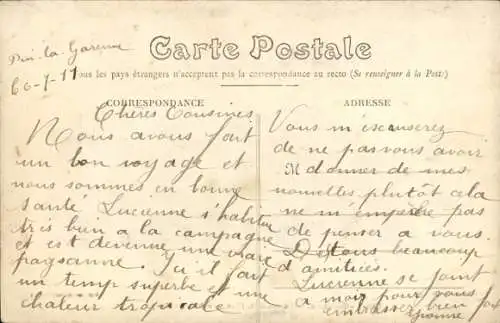 Pin-la-Garenne
Carte Postale
Tous les pays étrangers n'acceptent pas la correspondance au recto (Se renseigner à la Poste)
CORRESPONDANCE
ADRESSE
Chères Cousines
Nous avons fait
un bon voyage et
nous sommes en bonne
santé Lucienne s'habitue
très bien a la campagne
et est devenue une vraie
paysanne. Ya il fait
un temps superbe et une
chaleur tropicale
Vous m'éxcuserez
de ne pas vous avoir
M
donner de mes
nouvelles plutôt cela
ne m'empêche pas
de penser a vous.
Dis tous beaucoup
d'amitiées.
Lucienne se joint
a moi pour vous
embrasser bien fort
Yvonne